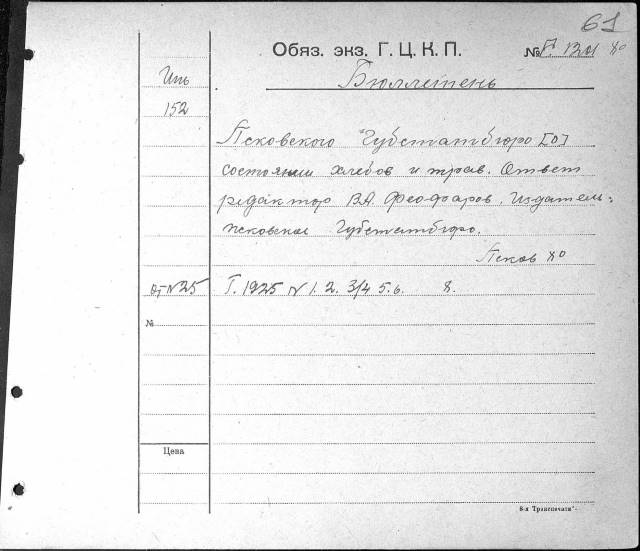 61
Обяз. экз. Г. Ц. К. П. №
Бюллетень
152
Псковского Губстатбюро [о]
состоянии хлебов и трав. Ответ
редактор В.А. Феофаров. Издатель:
псковское Губстатбюро.
Псков 8°
от N 25 Г. 1925 N 1. 2. 3/4 5. 6. 8.
№
Цена
8-я Транспечати".